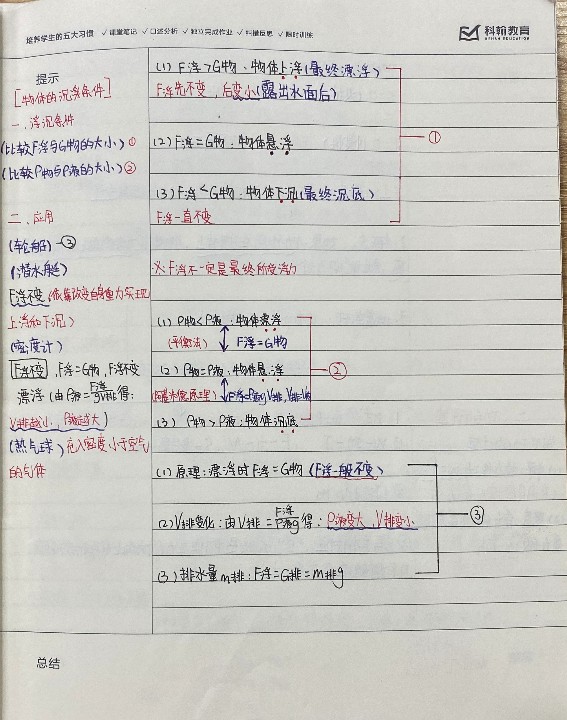 培养学生的五大习惯 ✓课堂笔记 ✓口述分析 ✓独立完成作业 ✓纠错反思 ✓限时训练
科翰教育
提示
[物体的沉浮条件]
一、浮沉条件
(比较F浮与G物的大小)①
(比较ρ物与ρ液的大小)②
二、应用
(轮船)—③
(潜水艇)
F浮不变(依靠改变自身重力实现
上浮和下沉)
(密度计)
F浮不变,F浮=G物,F浮不变
漂浮(由ρ液=F浮/gV排得:
V排越小,ρ液越大)
(热气球)充入密度小于空气
的气体
(1) F浮>G物:物体上浮(最终漂浮)
F浮先不变,后变小(露出水面后)
(2) F浮=G物:物体悬浮
①
(3) F浮<G物:物体下沉(最终沉底)
F浮一直不变
※F浮不一定是最终所受浮力
(1) ρ物<ρ液:物体漂浮
(平衡法) F浮=G物
(2) ρ物=ρ液:物体悬浮
②
(阿基米德原理) F浮=ρ液gV排,V排=V物
(3) ρ物>ρ液:物体沉底
(1) 原理:漂浮时F浮=G物(F浮一般不变)
(2) V排变化:由V排=F浮/ρ液g得:ρ液变大,V排变小
③
(3) 排水量m排:F浮=G排=m排g
总结